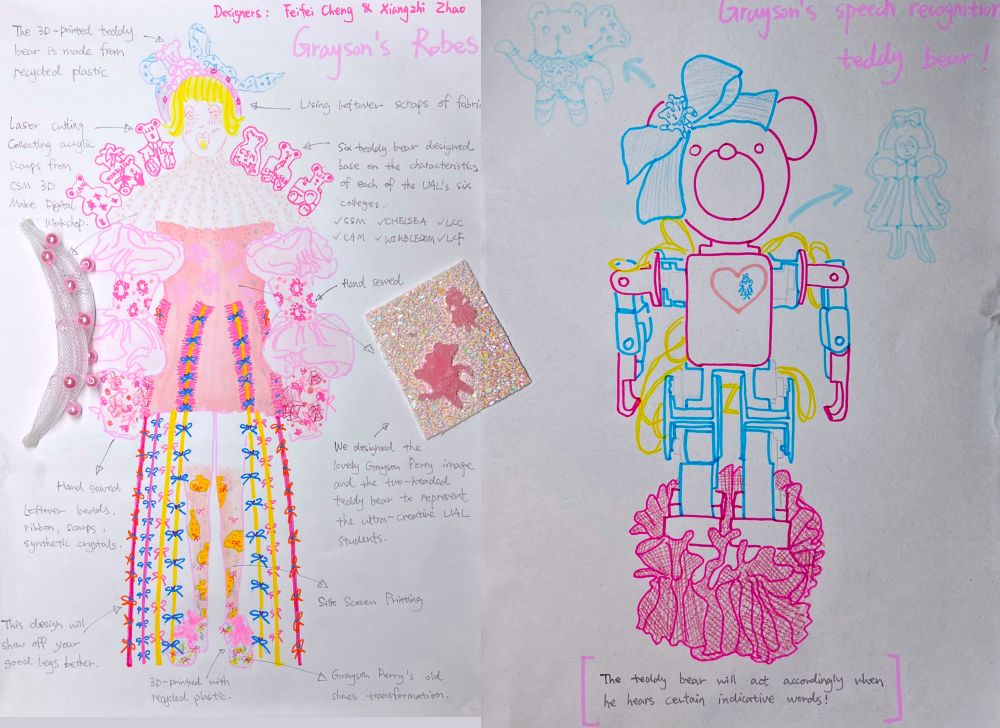 Designers: Feifei Cheng & Xiangzhi Zhao
Grayson's Robes
The 3D-printed teddy
bear is made from
recycled plastic
Using leftover scraps of fabric
Laser cutting
Collecting acrylic
scarps from
CSM 3D
Make Digital
Workshop.
Six teddy bear designed
base on the characteristics
of each of the UAL's six
colleges.
✓CSM ✓CHELSEA ✓LCC
✓CAM ✓WIMBLEDON ✓LCF
Hand sewed
We designed the
lovely Grayson Perry image
and the two-headed
teddy bear to represent
the ultra-creative UAL
students.
Hand sewed
Leftover beads,
ribbon, scarps,
synthetic crystals.
Silk Screen Printing
This design will
show off your
good legs better.
3D-printed with
recycled plastic.
Grayson Perry's old
shoes transformation.
Grayson's speech recognition
teddy bear!
The teddy bear will act accordingly when
he hears certain indicative words!